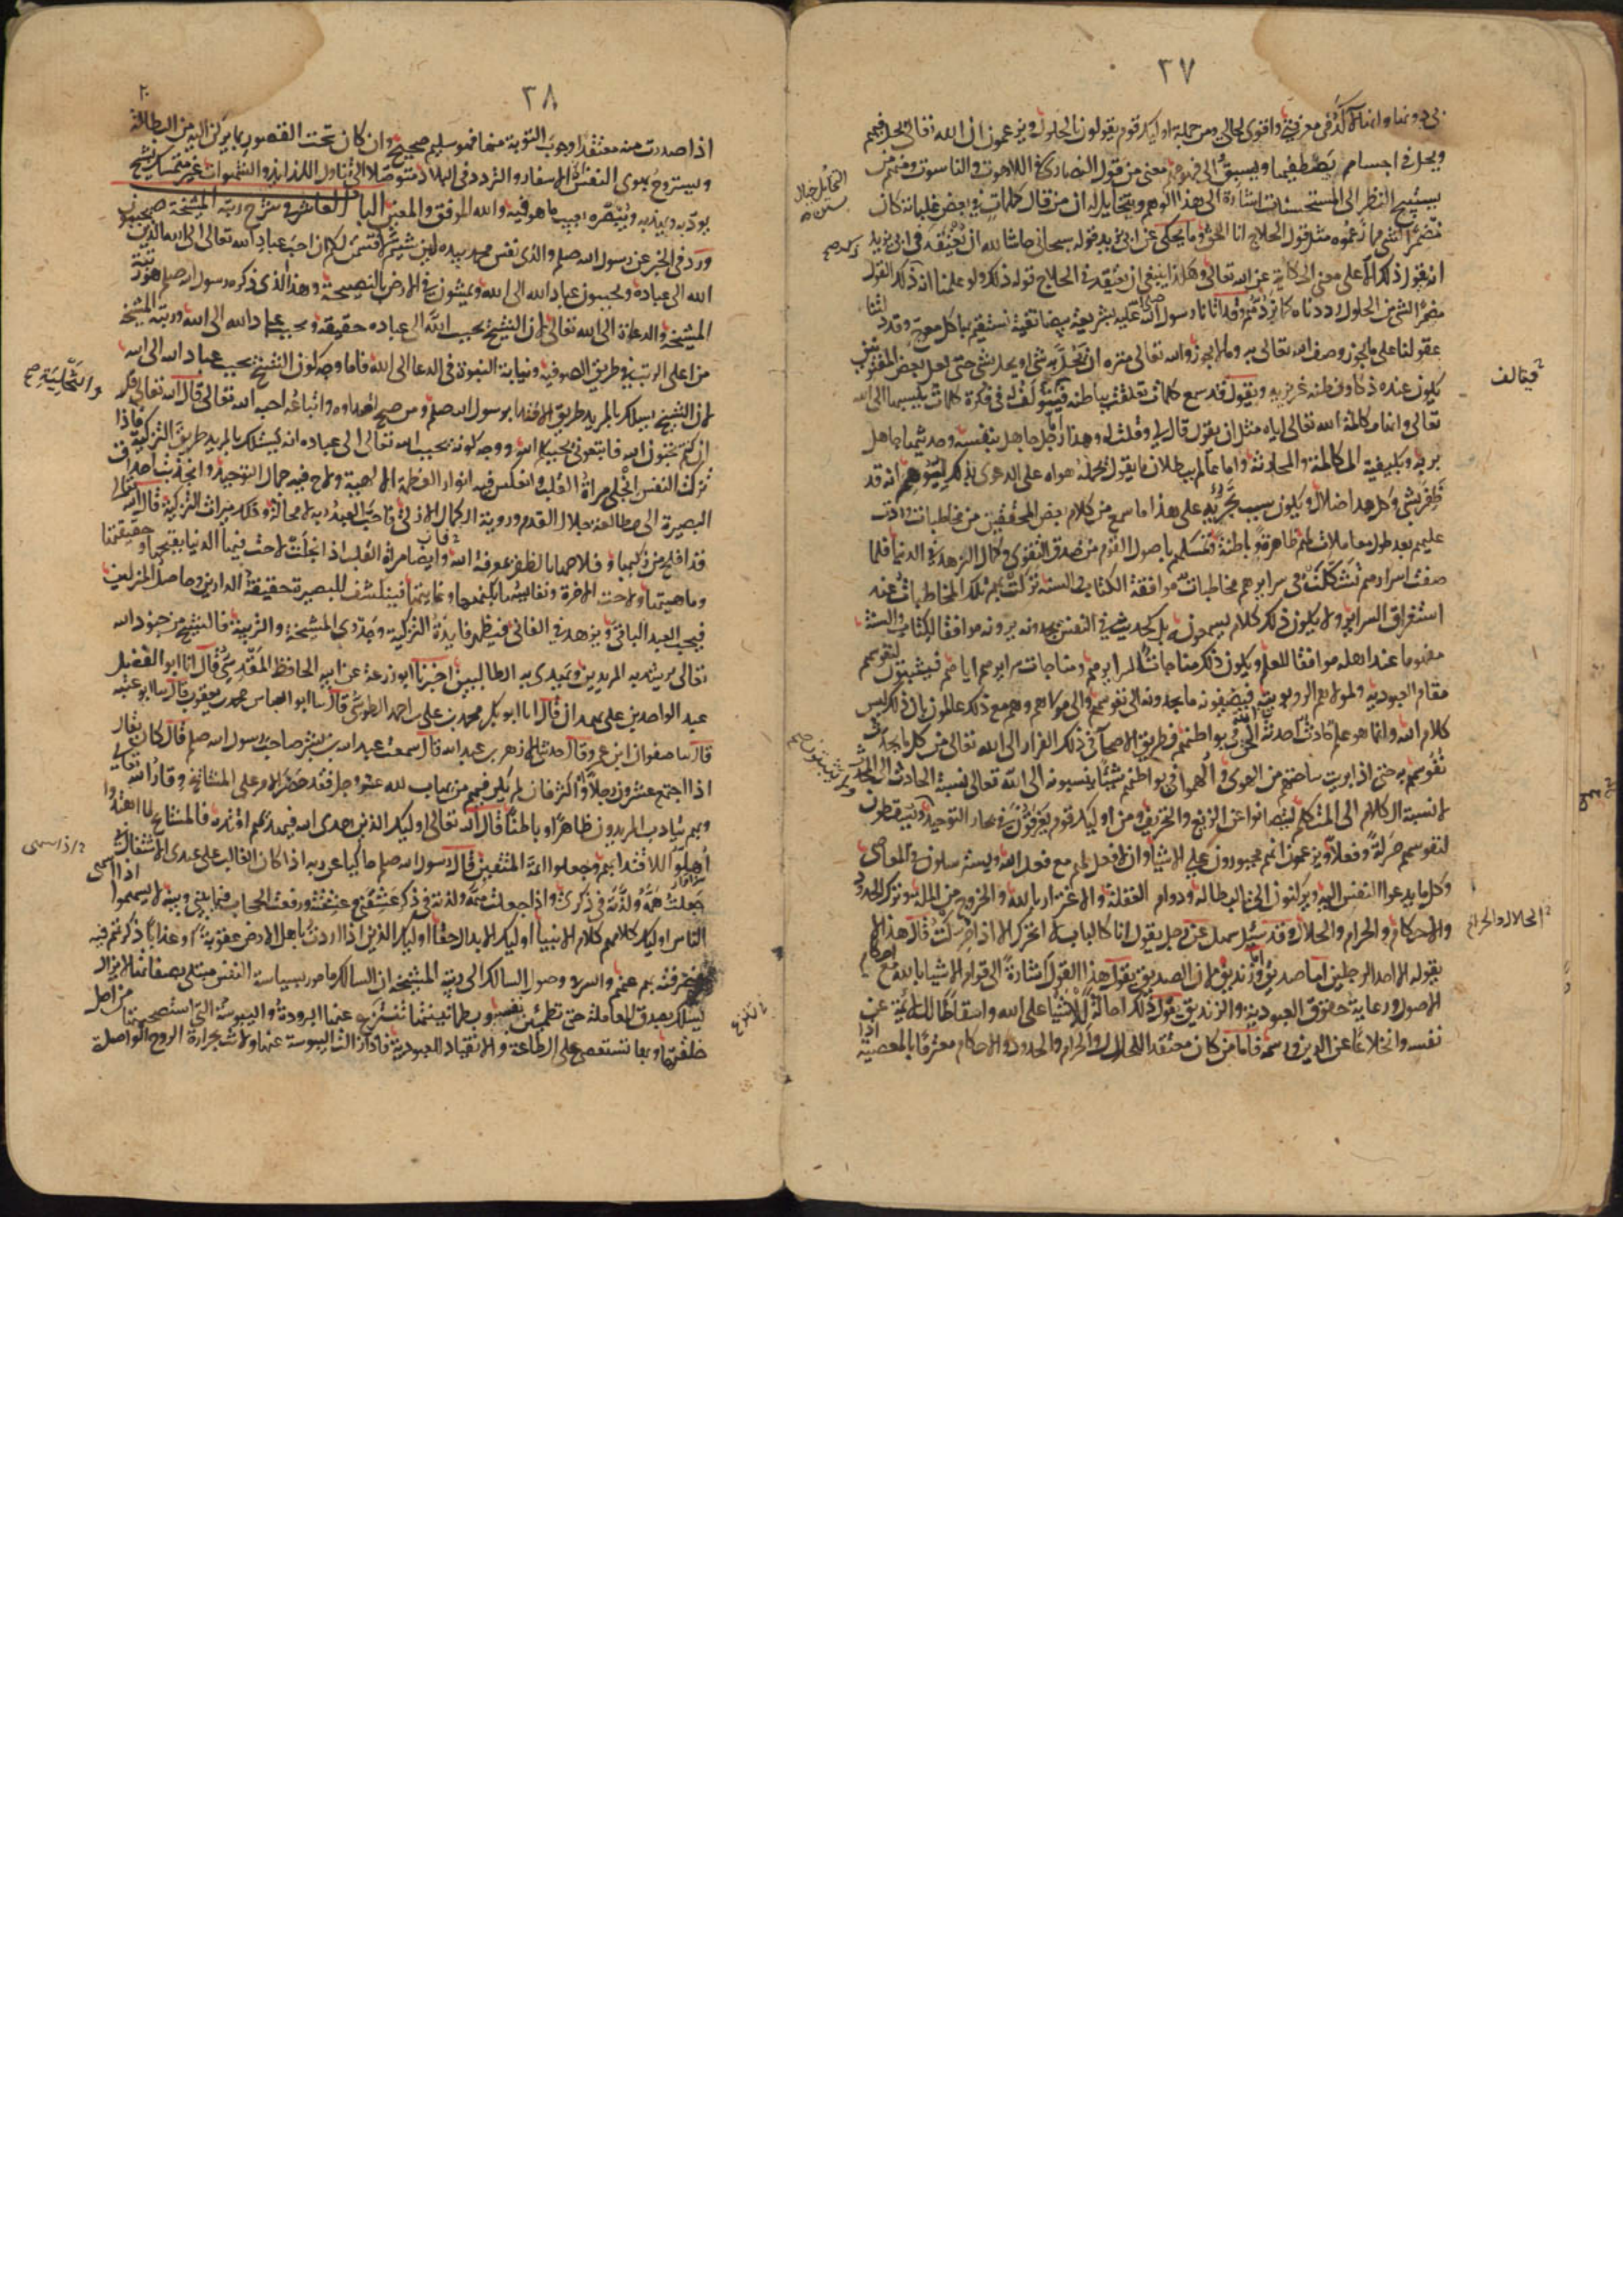 ٣٧
واقوى لحالى ومن جملة اوليك قوم يقولون بالحلول ويزعمون ان الله تعالى يحل فيهم
ويحل فى اجسام يصطفيها ويسبق الى فهومهم معنى من قول النصارى فى اللاهوت والناسوت ومنهم من
يستبيح النظر الى المستحسنات اشارة الى هذا الوهم ويتخايل له ان من قال كلمات فى بعض غلباته كان
مضمرا لشى مما زعموه مثل قول الحلاج انا الحق وما يحكى عن ابى يزيد قوله سبحانى حاشا لله ان نعتقد فى ابى يزيد
انه يقول ذلك الا على معنى الحكاية عن الله تعالى وهكذا ينبغى ان نعتقد فى الحلاج قوله ذلك ولو علمنا انه ذكر القول
مضمرا لشى من الحلول رددناه كما نردهم وقد اتانا رسول الله عليه بشريعة بيضا نقية يستقيم بها كل معوج وقد دلتنا
عقولنا على ما يجوز وصف الله تعالى به وما لا يجوز والله تعالى منزه ان يحل به شى او يحل بشى حتى لعل بعض المفتونين
يكون عنده ذكا وفطنه غريزيه ويقول قد سمع كلمات تعلقت بباطنه فيتولف له فى فكرة كلمات ينسبها الى الله
تعالى وانها مكالمة الله تعالى اياه مثل ان يقول قال لى وقلت له وهذا رجل اما جاهل بنفسه وحديثها جاهل
بربه وبكيفية المكالمة والمحادثة واما عالم ببطلان ما يقول يحمله هواه على الدعوى بذلك ليتوهم انه قد
ظفر بشى وكل هذا ضلال ويكون سبب تجريه على هذا ما سمع من كلام بعض المحققين من مخاطبات وردت
عليهم بعد طول معاملات لهم ظاهرة وباطنة وتمسكهم باصول القوم من صدق التقوى وكمال الزهد فى الدنيا فلما
صفت اسرارهم تشكلت فى سرايرهم مخاطبات موافقة الكتاب والسنه نزلت بهم تلك المخاطبات عند
استغراق السراير ولا يكون ذلك كلام يسمعونه بل كحديث فى النفس يجدونه يرونه موافقا للكتاب والسنة
مفهوما عند اهله موافقا للعلم ويكون ذلك مناجات لسرايرهم ومناجات سرايرهم اياهم فيثبتون لنفوسهم
مقام العبودية ولمولاهم الربوبية فيضيفون ما يجدونه الى نفوسهم والى مولاهم وهم مع ذلك عالمون بان ذلك ليس
كلام الله وانما هو علم حادث احدثه الله فى بواطنهم فطريق الاصحا فى ذلك الفرار الى الله تعالى من كل ما يحدث
نفوسهم به حتى اذا بريت ساحتهم من الهوى الهموا فى بواطنهم شيئا ينسبونه الى الله تعالى نسبة الحادث الى المحدث
لا نسبة الكلام الى المتكلم ليصانوا عن الزيغ والتحريف ومن اوليك قوم يغرقون فى بحار التوحيد ويسقطون
لنفوسهم حركة وفعلا ويزعمون انهم مجبورون على الاشيا وان لا فعل لهم مع فعل الله ويسترسلون فى المعاصى
وكل ما يدعوا النفس اليه ويركنون الى البطاله ودوام الغفلة والاغترار بالله والخروج من الملة وترك الحدود
والاحكام والحرام والحلال وقد سئل سهل عن رجل يقول انا كالباب لا اتحرك الا اذا حركت قال هذا لا
يقوله الا احد الرجلين اما صديق او زنديق لان الصديق يقول هذا القول اشارة الى قوام الاشيا بالله مع احكام
الاصول ورعاية حقوق العبودية والزنديق يقول ذلك احالة للاشيا على الله واسقاطا للائمة عن
نفسه وانخلاعا عن الدين ورسمه فاما من كان معتقد اللحلال والحرام والحدود والاحكام معترفا بالمعصية اذا
فيتالف
الحلال والحرام
٣٨
اذا صدرت منه معتقدا وجوب التوبة منها فهو سليم صحيح وان كان تحت القصور بما يركن اليه من البطالة
ويستروح بهوى النفس الى الاسفار والتردد فى البلاد متوصلا الى تناول اللذايذ والشهوات غير متمسك بشيخ
يودبه ويهذبه ويبصره بعيب ما هو فيه والله الموفق والمعين الباب العاشر فى شرح رتبة المشيخة
ورد فى الخبر عن رسول الله صلعم والذى نفس محمد بيده لين شيتم لاقسمن لكم ان احب عباد الله تعالى الى الله الذين يحببون
الله الى عباده ويحببون عباد الله الى الله ويمشون فى الارض بالنصيحة وهذا الذى ذكره رسول الله صلعم هو رتبة
المشيخة والدعاة الى الله تعالى لان الشيخ يحبب الله الى عباده حقيقة ويحبب عباد الله الى الله ورتبة المشيخة
من اعلى الرتب فى طريق الصوفيه ونيابة النبوة فى الدعا الى الله فاما وجه كون الشيخ يحبب عباد الله الى الله
لان الشيخ يسلك بالمريد طريق الاقتدا برسول الله صلعم ومن صح اقتداوه واتباعه احبه الله تعالى قال الله تعالى قل
ان كنتم تحبون الله فاتبعونى يحببكم الله ووجه كونه يحبب الله تعالى الى عباده انه يسلك بالمريد طريق التزكية فاذا
تزكت النفس انجلى مراة القلب وانعكس فيه انوار العظمة الالهية ولاح فيه جمال التوحيد وانجذبت احداق
البصيرة الى مطالعة جلال القدم وروية الكمال الازلى فاحب العبد ربه لا محالة وذلك ميراث التزكية قال الله تعالى
قد افلح من زكيها وفلاحها بالظفر بمعرفة الله وايضا مراة القلب اذا انجلت لاحت فيها الدنيا بقبحها وحقيقتها
وماهيتها ولاحت الاخرة ونفايسها بكنهها وغايتها فينكشف للبصيرة حقيقة الدارين وحاصل المنزلين
فيحب العبد الباقى ويزهد فى الفانى فيظهر فايدة التزكية وجدوى المشيخة والتربية فالشيخ من جنود الله
تعالى يرشد به المريدين ويهدى به الطالبين اخبرنا ابو زرعة عن ابيه الحافظ المقدسى قال انا ابو الفضل
عبد الواحد بن على بهمدان قال انا ابو بكر محمد بن على بن احمد الطوسى قال سا ابو العباس محمد بن يعقوب قال سا ابو عتبه
قال سا صفوان ابن عمرو قال حدثنى الازهر بن عبد الله قال سمعت عبد الله بن بشر صاحب رسول الله صلعم قال كان يقال
اذا اجتمع عشرون رجلا او اكثر فان لم يكن فيهم من يهاب لله عز وجل فقد حضر الامر على المشايخ وقار الله
وبهم يتادب المريدون ظاهرا وباطنا قال الله تعالى اوليك الذين هدى الله فبهداهم اقتده فالمشايخ لما اهتدوا
اهلوا للاقتدا بهم وجعلوا ايمة المتقين قال رسول الله صلعم حاكيا عن ربه اذا كان الغالب على عبدى الاشتغال بى
جعلت همه ولذته فى ذكرى واذا جعلت همه ولذته فى ذكرى عشقنى وعشقته ورفعت الحجاب فيما بينى وبينه لا يسهوا اذا سهى
الناس اوليك كلامهم كلام الانبيا اوليك الابدال حقا اوليك الذين اذا اردت باهل الارض عقوبة او عذابا ذكرتهم فيه
فصرفته بهم عنهم والسر فى وصول السالك الى رتبة المشيخة ان السالك مامور بسياسة النفس مبتلى بصفاتها لا يزال
يسلك بصدق المعاملة حتى تطمئن نفسه وبطمانينتها تنتزع عنها البرودة واليبوسة التى استصحبتها من اصل
خلقتها وبها تستعصى على الطاعة والانقياد للعبودية فاذا زالت اليبوسة عنها ولانت بحرارة الروح الواصلة
والتحلية صح